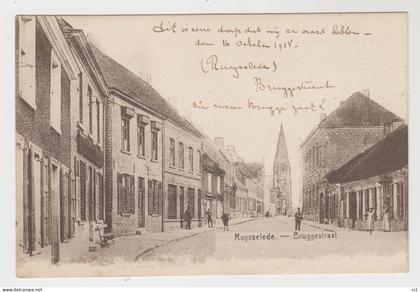 Dit is eene dorp dat wij en overd hebben —
den 16 October 1918.
(Ruysselede)
Bruggestraat
die naar Brugge gaat
Ruysselede. — Bruggestraat